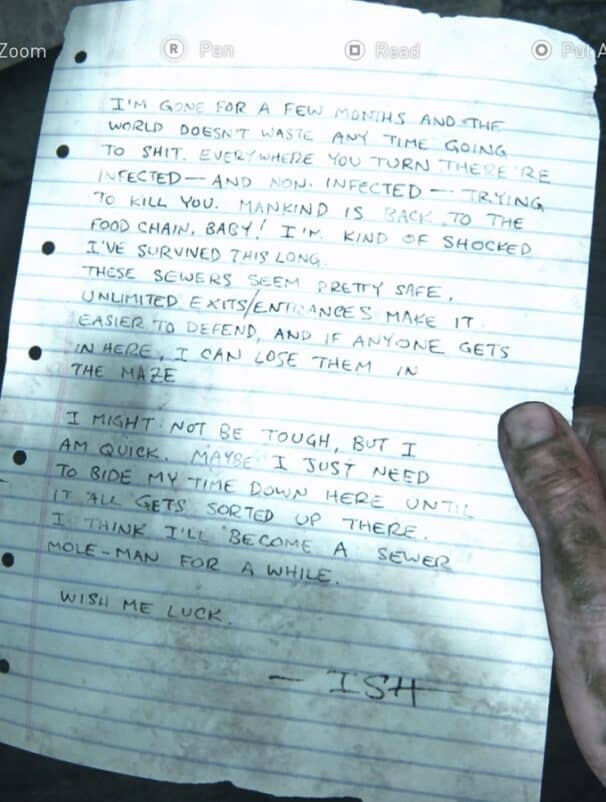 Zoom
R Pan
Read
I'M GONE FOR A FEW MONTHS AND THE
WORLD DOESN'T WASTE ANY TIME GOING
TO SHIT. EVERYWHERE YOU TURN THERE'RE
INFECTED — AND NON. INFECTED — TRYING
TO KILL YOU. MANKIND IS BACK TO THE
FOOD CHAIN, BABY! I'M KIND OF SHOCKED
I'VE SURVIVED THIS LONG.
THESE SEWERS SEEM PRETTY SAFE.
UNLIMITED EXITS/ENTRANCES MAKE IT
EASIER TO DEFEND, AND IF ANYONE GETS
IN HERE, I CAN LOSE THEM IN
THE MAZE
I MIGHT NOT BE TOUGH, BUT I
AM QUICK. MAYBE I JUST NEED
TO BIDE MY TIME DOWN HERE UNTIL
IT ALL GETS SORTED UP THERE.
I THINK I'LL BECOME A SEWER
MOLE-MAN FOR A WHILE.
WISH ME LUCK.
— ISH